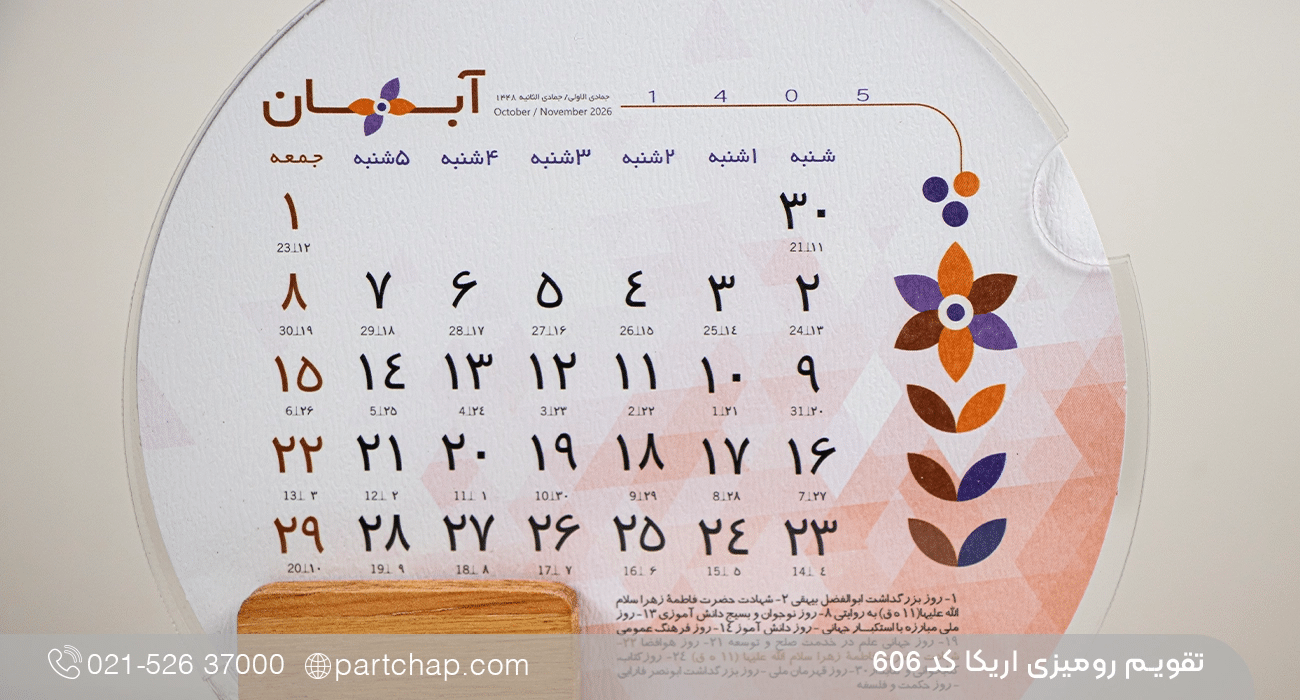 آبـــان
جمادی الاولی/ جمادی الثانیه ۱۴۴۸
October / November 2026
1 4 0 5
شنبه ۱شنبه ۲شنبه ۳شنبه ۴شنبه ۵شنبه جمعه
۳۰ ۱
21⊥۱۱ 23⊥۱۲
۲ ۳ ۴ ۵ ۶ ۷ ۸
24⊥۱۳ 25⊥۱۴ 26⊥۱۵ 27⊥۱۶ 28⊥۱۷ 29⊥۱۸ 30⊥۱۹
۹ ۱۰ ۱۱ ۱۲ ۱۳ ۱۴ ۱۵
31⊥۲۰ 1⊥۲۱ 2⊥۲۲ 3⊥۲۳ 4⊥۲۴ 5⊥۲۵ 6⊥۲۶
۱۶ ۱۷ ۱۸ ۱۹ ۲۰ ۲۱ ۲۲
7⊥۲۷ 8⊥۲۸ 9⊥۲۹ 10⊥۳۰ 11⊥۱ 12⊥۲ 13⊥۳
۲۳ ۲۴ ۲۵ ۲۶ ۲۷ ۲۸ ۲۹
14⊥۴ 15⊥۵ 16⊥۶ 17⊥۷ 18⊥۸ 19⊥۹ 20⊥۱۰
۱- روز بزرگداشت ابوالفضل بیهقی ۲- شهادت حضرت فاطمهٔ زهرا سلام
الله علیها(۱۱ ه ق) به روایتی ۸- روز نوجوان و بسیج دانش آموزی ۱۳- روز
ملی مبارزه با استکبـار جهانی - روز دانش آموز ۱۴- روز فرهنگ عمومی
۱۹- روز جهانی علم در خدمت صلح و توسعه ۲۱- روز هوافضا ۲۲-
فاطمهٔ زهرا سلام الله علیها (۱۱ ه ق) ۲۴- روز کتاب،
۳۰- روز قهرمان ملی - روز بزرگداشت ابونصر فارابی
- روز حکمت و فلسفه
تقویم رومیزی اریکا کد 606
021-526 37000 partchap.com